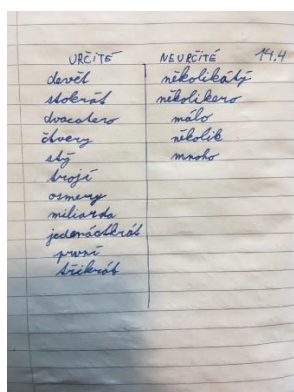 URČITÉ NEURČITÉ 14.4
devět několikátý
stokrát několikero
dvacatero málo
čtvery několik
stý mnoho
trojí
osmery
miliarda
jedenáctkrát
první
třikrát